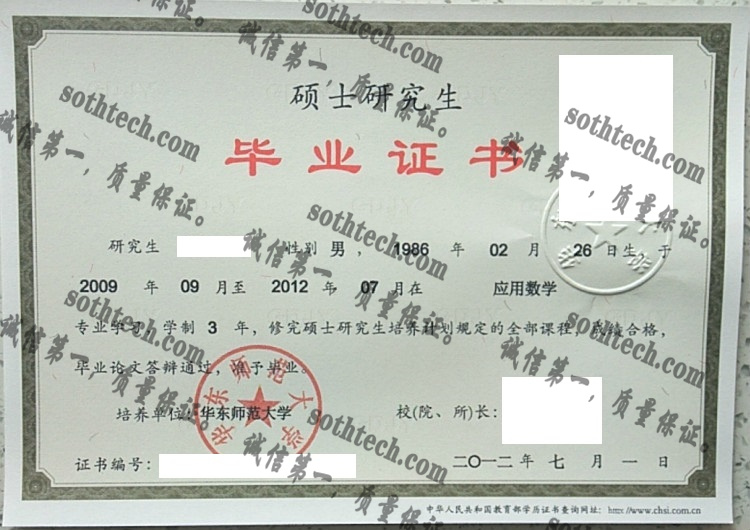 硕士研究生
毕业证书
研究生 性别 男，1986 年 02 月 26 日生，于
2009 年 09 月至 2012 年 07 月在 应用数学
专业学习，学制 3 年，修完硕士研究生培养计划规定的全部课程，成绩合格，
毕业论文答辩通过，准予毕业。
培养单位：华东师范大学 校(院、所)长：
华东师范大学
证书编号： 二〇一二年 七 月 一 日
中华人民共和国教育部学历证书查询网址：http://www.chsi.com.cn
sothtech.com
诚信第一，质量保证。
sothtech.com
诚信第一，质量保证。
sothtech.com
诚信第一，质量保证。
sothtech.com
诚信第一，质量保证。
sothtech.com
诚信第一，质量保证。
sothtech.com
诚信第一，质量保证。
sothtech.com
诚信第一，质量保证。